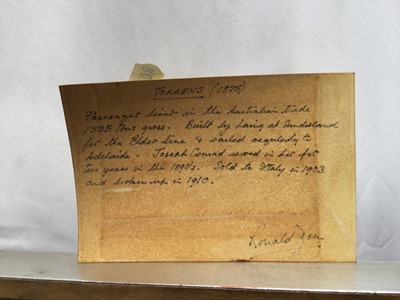 TORRENS (1875)
Passenger liner in the Australian trade
1335 tons gross. Built by Laing at Sunderland
for the Elder Line & sailed regularly to
Adelaide - Joseph Conrad served in her for
two years in the 1890's. Sold to Italy in 1903
and broken up in 1910.
Ronald